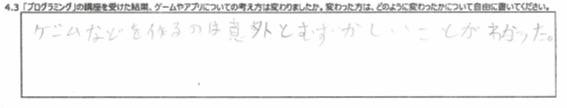 4.3 「プログラミング」の講座を受けた結果、ゲームやアプリについての考え方は変わりましたか。変わった方は、どのように変わったかについて自由に書いてください。
ゲームなどを作るのは意外とむずかしいことがわかった。